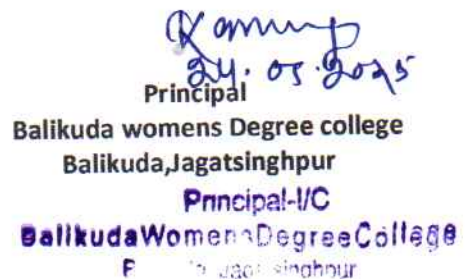 24.05.2025
Principal
Balikuda womens Degree college
Balikuda,Jagatsinghpur
Principal-I/C
BalikudaWomensDegreeCollege